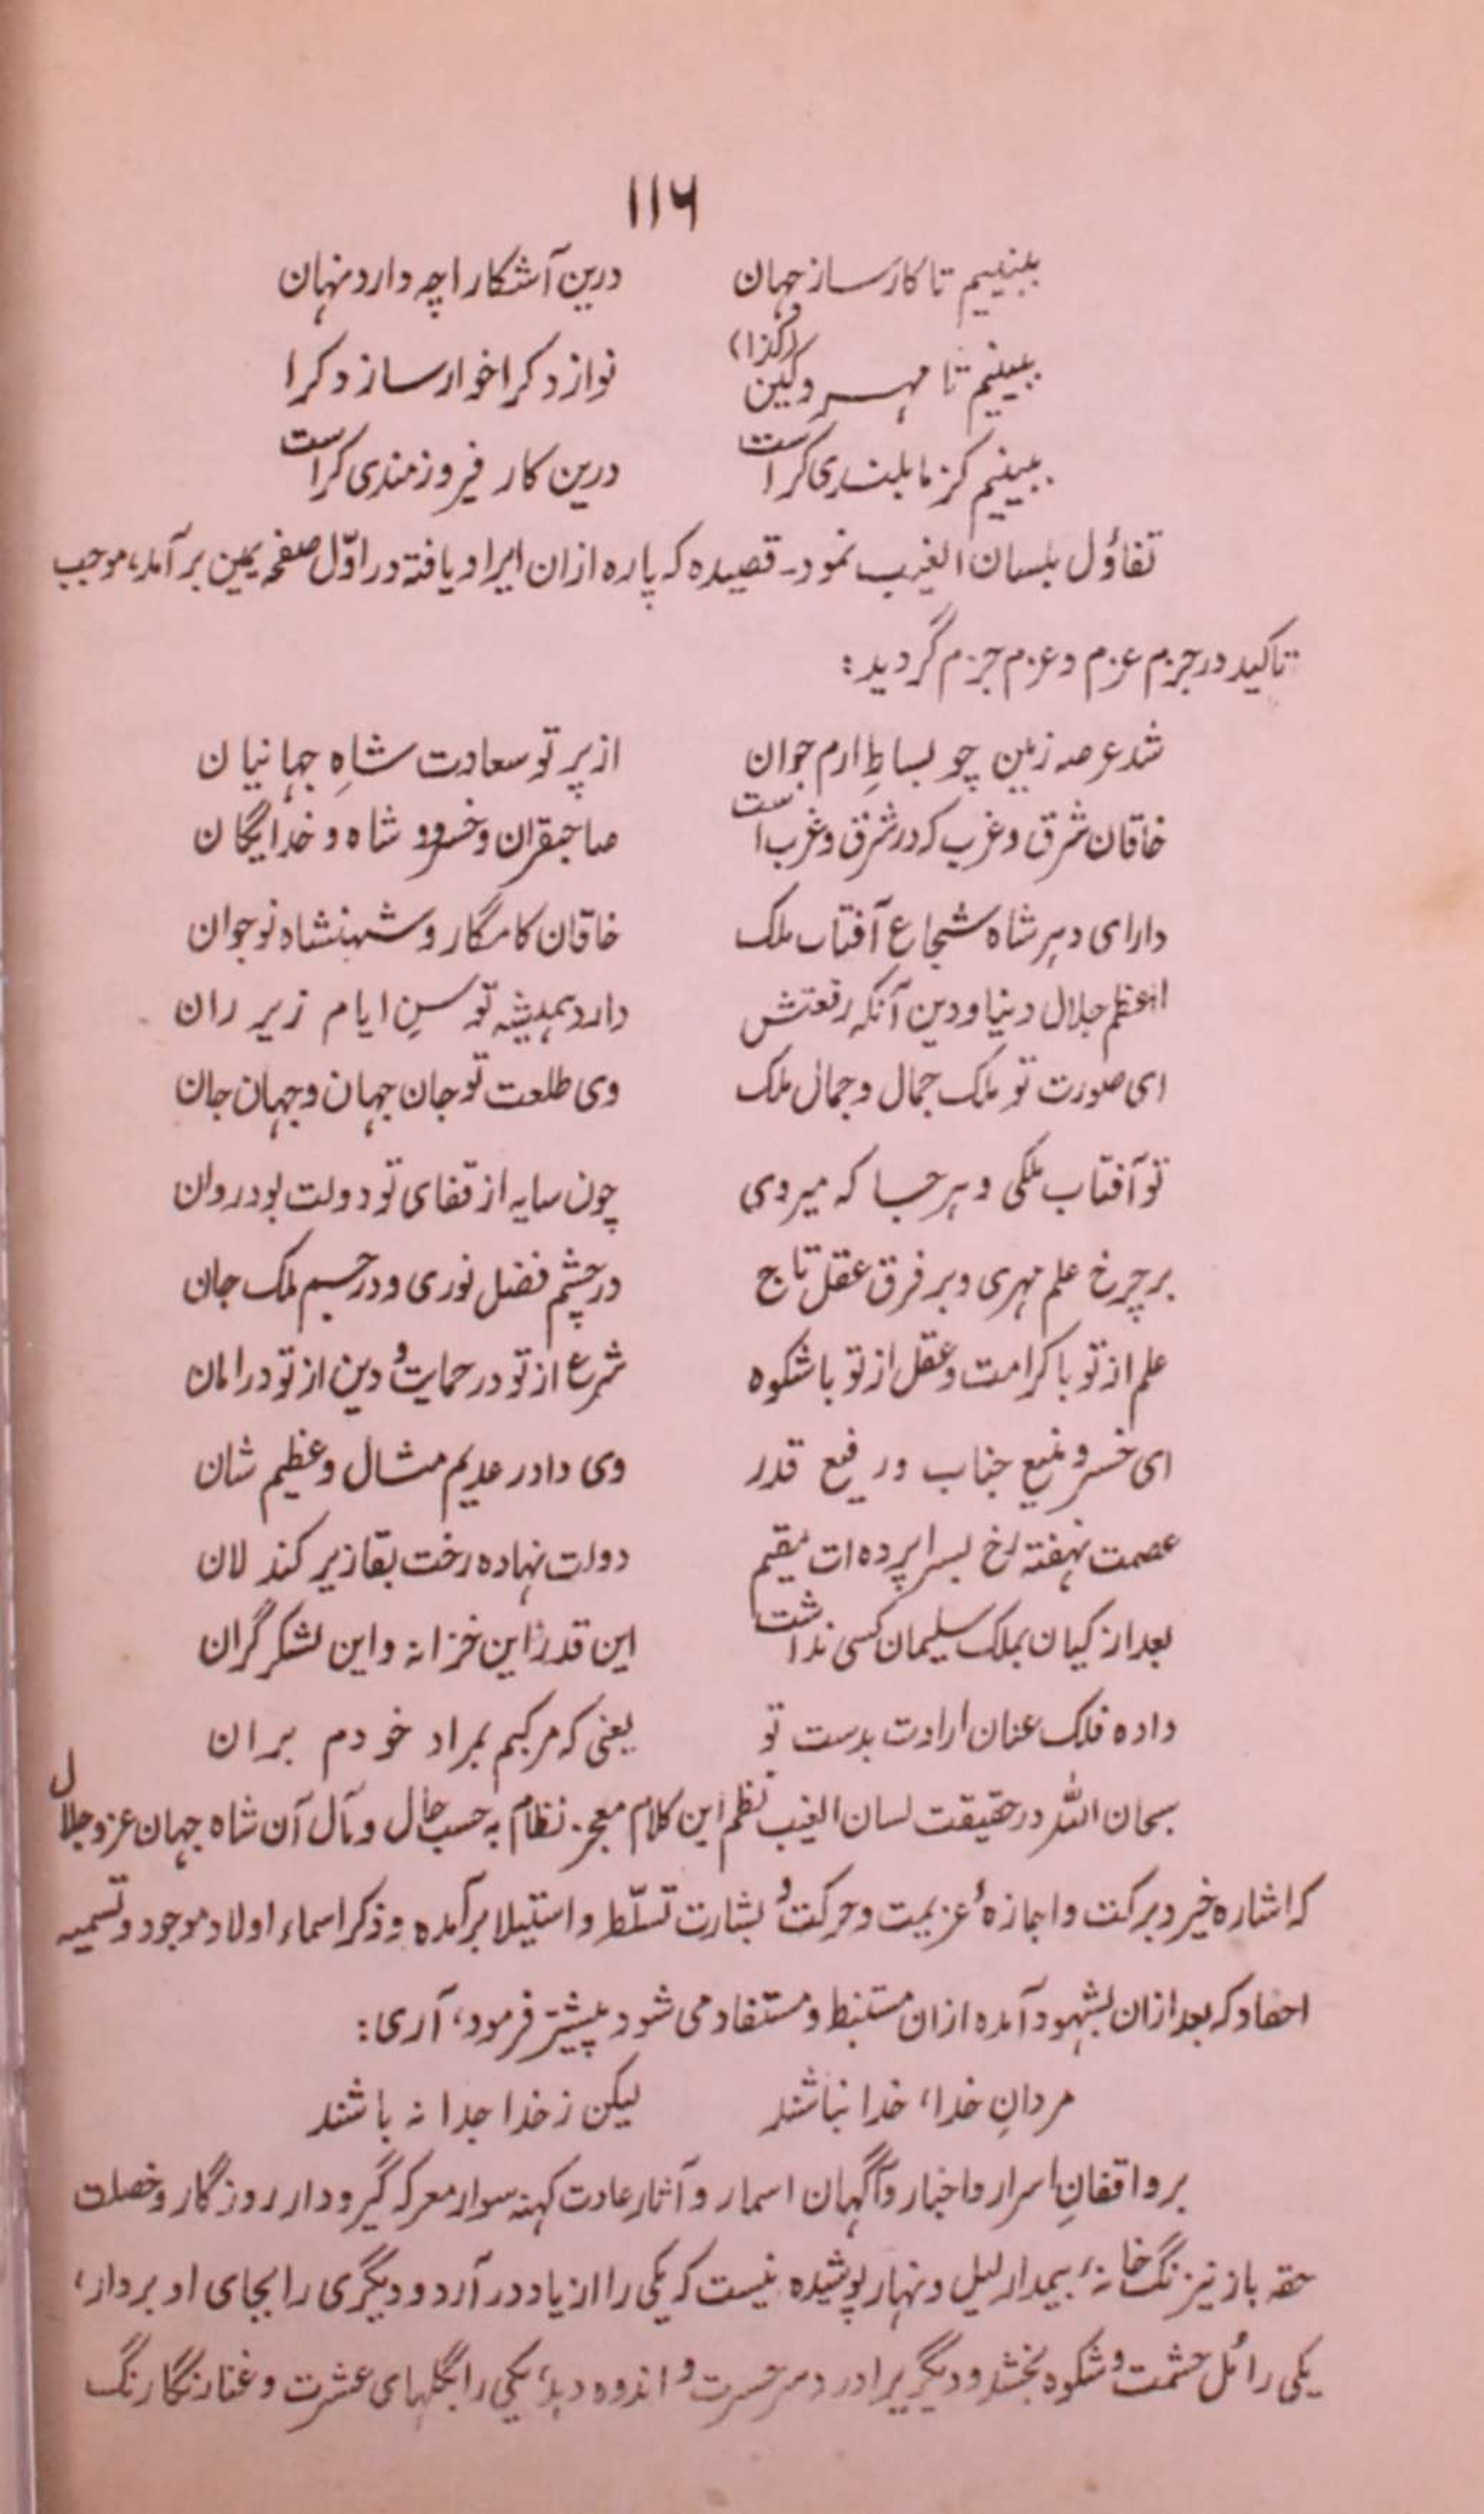 ۱۱۶
ببینیم تا کارساز جهان درین آشکارا چه دارد نهان
ببینیم تا مهر و کین (کذا) نوازد کرا خوار سازد کرا
ببینیم کز ما بلندی کراست درین کار فیروزمندی کراست
تفاؤل بلسان الغیب نمود۔ قصیده که پاره ازان ایراد یافته در اوّل صفحه یمین برآمد، موجب
تاکید در جزم عزم و عزم جزم گردید:
شد عرصه زمین چو بساطِ ارم جوان از پرتو سعادت شاهِ جهانیان
خاقان شرق و غرب که در شرق و غرب است صاحبقران و خسرو و شاه و خدایگان
دارای دهر شاه شجاع آفتاب ملک خاقان کامگار و شهنشاه نوجوان
اعظم جلال دنیا و دین آنکه رفعتش دارد همیشه توسنِ ایام زیر ران
ای صورت تو ملک جمال و جمال ملک وی طلعت تو جان جهان و جهان جان
تو آفتاب ملکی و هر جا که میروی چون سایه از قفای تو دولت بود روان
بر چرخ علم مهری و بر فرق عقل تاج در چشم فضل نوری و در جسم ملک جان
علم از تو با کرامت و عقل از تو با شکوه شرع از تو در حمایت و دین از تو در امان
ای خسرو منیع جناب و رفیع قدر وی دادر عدیم مثال و عظیم شان
عصمت نهفته رخ بسراپرده‌ات مقیم دولت نهاده رخت بقا زیر کندلان
بعد از کیان بملک سلیمان کسی نداشت این قدر این خزانه و این لشکر گران
داده فلک عنان ارادت بدست تو یعنی که مرکبم بمراد خودم بران
سبحان الله در حقیقت لسان الغیب نظم این کلام معجز نظام به حسب حال و مآل آن شاه جهان عز و جلال
که اشاره خیر و برکت و اجازهٔ عزیمت و حرکت و بشارت تسلّط و استیلا برآمده و ذکر اسماء اولاد موجود و تسمیه
احفاد که بعد ازان بشهود آمده ازان مستنبط و مستفاد می شود پیشتر فرمود، آری:
مردانِ خدا، خدا نباشند لیکن ز خدا جدا نه باشند
بر واقفانِ اسرار و اخبار و آگهان اسمار و آثار عادت کهنه سوار معرکه گیرودار روزگار و خصلت
حقه باز نیرنگ خانهٔ بیمدار لیل و نهار پوشیده نیست که یکی را از یاد درآرد و دیگری را بجای او بردارد،
یکی را مُل حشمت و شکوه بخشد و دیگریرا درد سر حسرت و اندوه دهد، یکی را بگلهای عشرت و غنا رنگارنگ